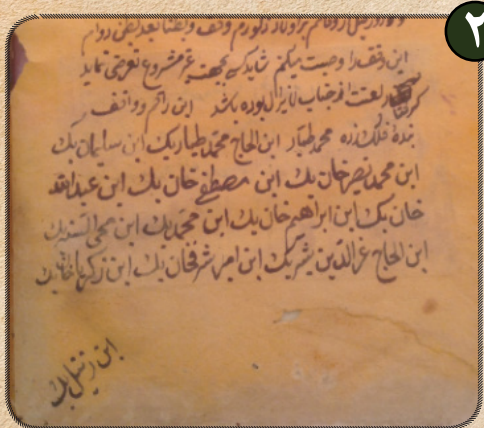 ۲
این وقف را وصیت میکنم شاید کسی بجهة غیر مشروع تعرضی نماید
گرفتار لعنت از جناب لایزال بوده باشد این راقم و واقف
بندهٔ فلک زده محمد طیار ابن الحاج محمد طیار بک ابن سلیمان بک
ابن محمد نصیر خان بک ابن مصطفی خان بک ابن عبدالله
خان بک ابن ابراهیم خان بک ابن محمد بک ابن محی الدین بک
ابن الحاج عزالدین شیر بک ابن امیر شرفخان بک ابن زکریا خان بک
ابن زینل بک